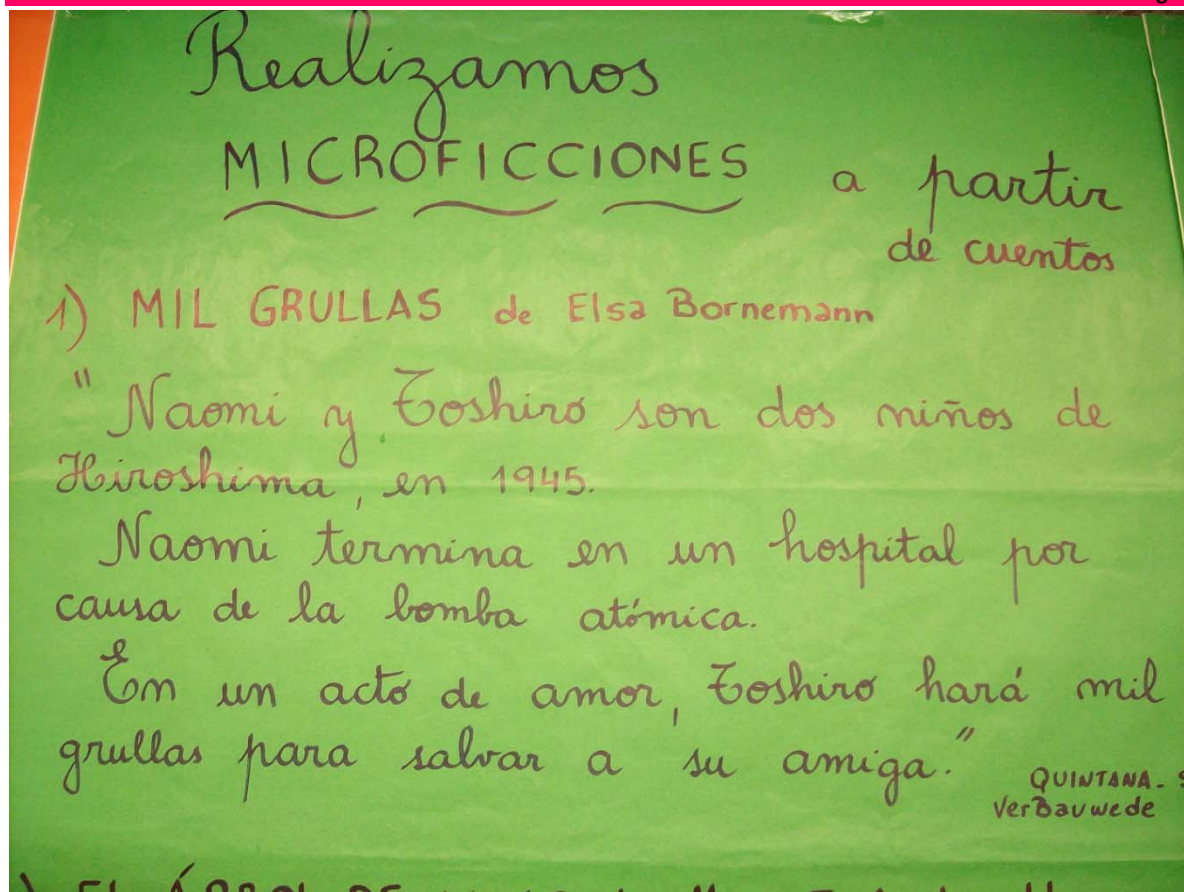 Realizamos
MICROFICCIONES a partir
de cuentos
1) MIL GRULLAS de Elsa Bornemann
"Naomi y Toshiro son dos niños de
Hiroshima, en 1945.
Naomi termina en un hospital por
causa de la bomba atómica.
En un acto de amor, Toshiro hará mil
grullas para salvar a su amiga."
QUINTANA-
VerBauwede